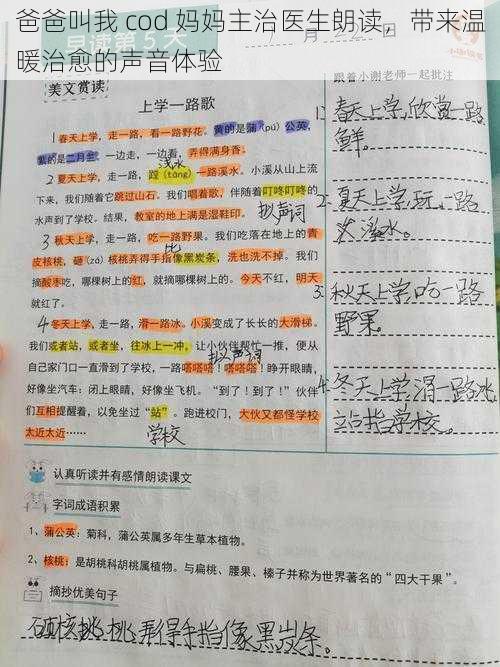 爸爸叫我 cod 妈妈主治医生朗读，带来温
暖治愈的声音体验
早读第5天
月
跟着小谢老师一起批注
美文赏读
上学一路歌
1春天上学，走一路，看一路野花。黄的是蒲（pú）公英，
紫的是二月生，一边走，一边看，弄得满身香。
浅水
2夏天上学，走一路，蹚（tāng）一路溪水。小溪从山上流
下来，我们随着它跳过山石。我们唱着歌，伴随着叮咚叮咚的
水声到了学校。结果，教室的地上满是湿鞋印。
拟声词
3秋天上学，走一路，吃一路野果。我们吃落在地上的青
比
皮核桃，砸（zá）核桃弄得手指像黑炭条，洗也洗不掉。我们
摘酸枣吃，哪棵树上的红，就摘哪棵树上的。今天不红，明天
就红了。
4冬天上学，走一路，滑一路冰。小溪变成了长长的大滑梯。
我们或者站，或者坐，往冰上一冲，让小伙伴帮忙一推，便从
拟声词
自己家门口一直滑到了学校，一路嗒嗒嗒！嗒嗒嗒！睁开眼睛，
好像坐汽车；闭上眼睛，好像坐飞机。“到了！到了！”伙伴
们互相提醒着，以免坐过“站”。跑进校门，大伙又都怪学校
太近太近……
学校
1、春天上学，欣赏一路
鲜。
2、夏天上学，玩一路
溪水。
3、秋天上学，吃一路
野果。
4、冬天上学，滑一路冰
站指学校。
认真听读并有感情朗读课文
字词成语积累
1、蒲公英：菊科，蒲公英属多年生草本植物。
2、核桃：是胡桃科胡桃属植物。与扁桃、腰果、榛子并称为世界著名的“四大干果”。
摘抄优美句子
砸核桃弄得手指像黑炭条。